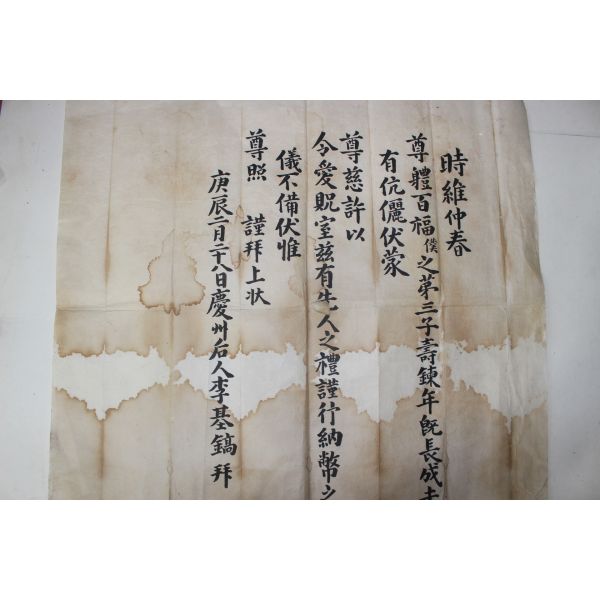 時維仲春
尊軆百福僕之第三子壽鍊年旣長成未
有伉儷伏蒙
尊慈許以
令愛貺室玆有先人之禮謹行納幣之
儀不備伏惟
尊照 謹拜上状
庚辰二月二十八日慶州后人李基鎬 拜